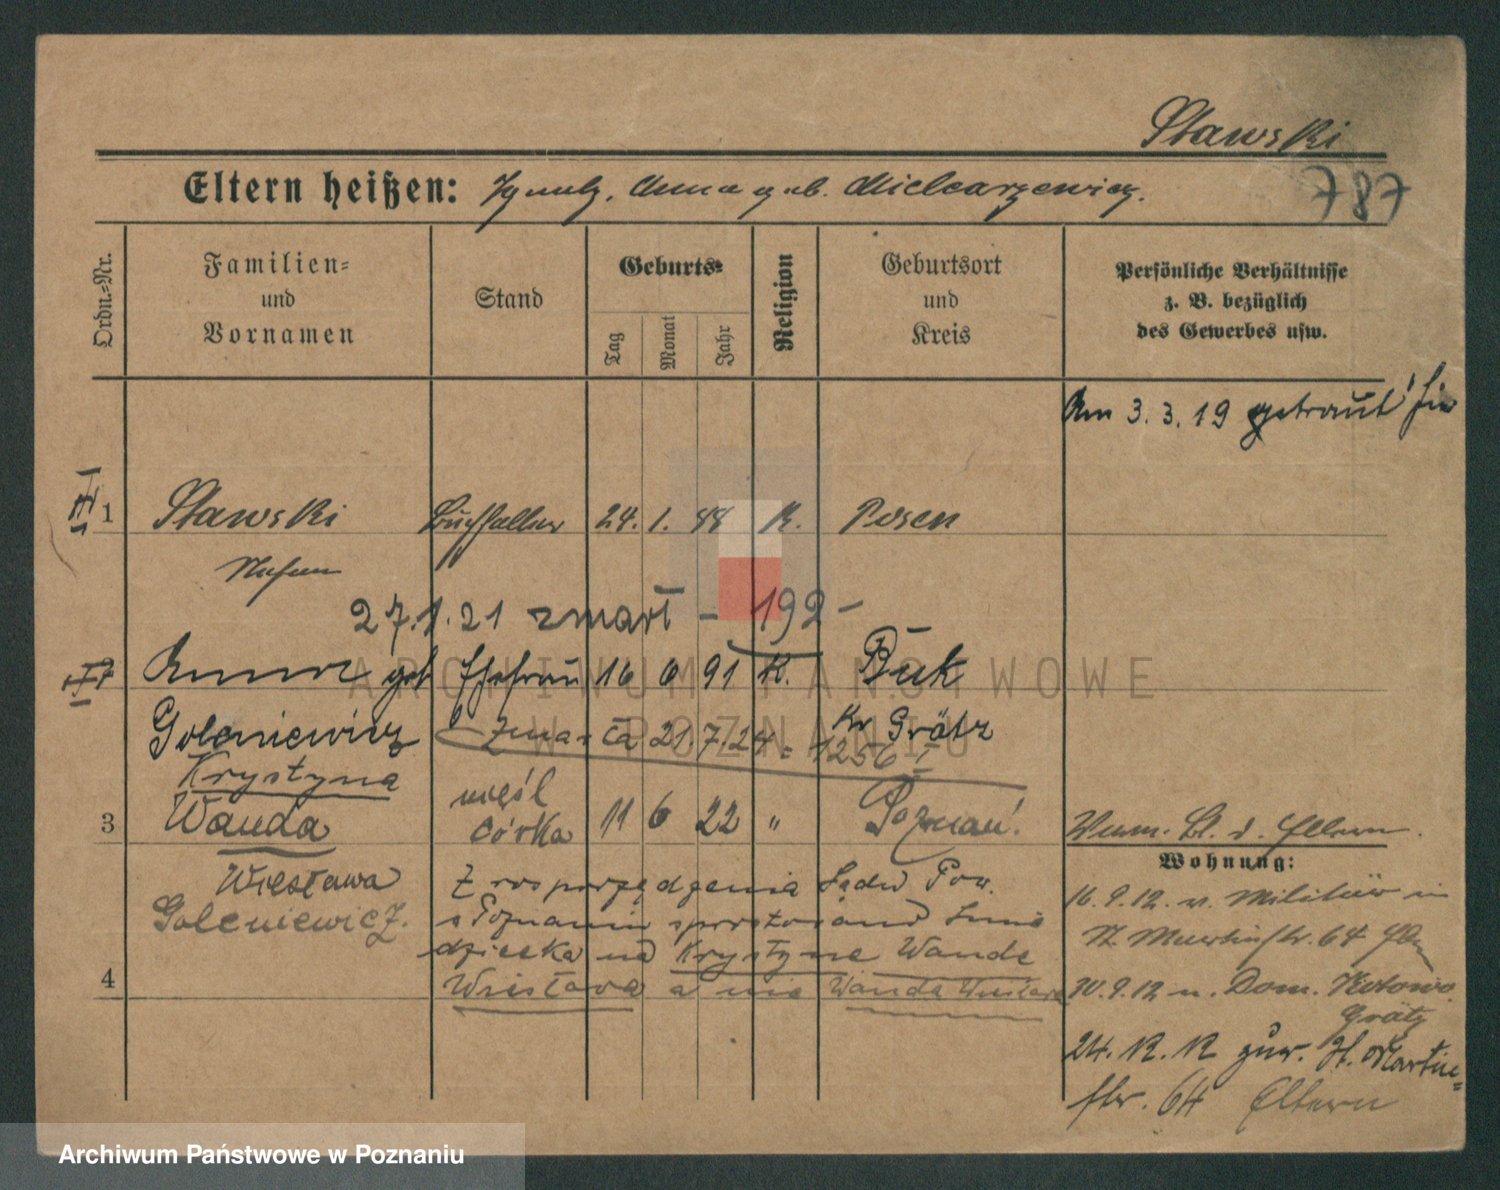 Stawski
Eltern heißen: Ignatz, Anna geb. Mielcarzewicz.
787
Ordn.-Nr.
Familien-
und
Vornamen
Stand
Geburts-
Tag
Monat
Jahr
Religion
Geburtsort
und
Kreis
Persönliche Verhältnisse
z. B. bezüglich
des Gewerbes usw.
Am 3. 3. 19 getraut hier
1 Stawski Buchhalter 24. 1. 88 K. Posen
Stefan
27.1.21 zmarł - 192-
Anna geb Ehefrau 16 6 91 K. Buk
Goleniewicz zmarła 21.7.24 = 1256 I
Kr Grätz
Krystyna
3 Wanda córka 11 6 22 " Poznań.
Wiesława
Goleniewicz.
Z rosporządzenia Sądu Pow.
w Poznaniu sprostowano Imię
dziecka na Krystyne Wande
4 Wiesława a nie Wanda Wiesława
Wohnung:
16.9.12. v. Militär in
St. Martinstr. 64
30.9.12 n. Dom. Kotowo
Grätz
24. zur. St. Martin-
str. 64 Eltern
ARCHIWUM PAŃSTWOWE
W POZNANIU
Archiwum Państwowe w Poznaniu